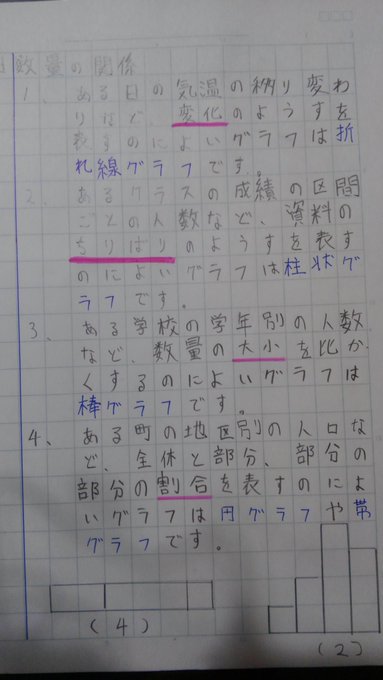 数量の関係
1、ある日の気温の移り変わ
りなど、変化のようすを
表すのによいグラフは折
れ線グラフです。
2、あるクラスの成績の区間
ごとの人数など、資料の
ちりばりのようすを表す
のによいグラフは柱状グ
ラフです。
3、ある学校の学年別の人数
など、数量の大小を比か
くするのによいグラフは
棒グラフです。
4、ある町の地区別の人口な
ど、全体と部分、部分の
部分の割合を表すのによ
いグラフは円グラフや帯
グラフです。
(4)
(2)